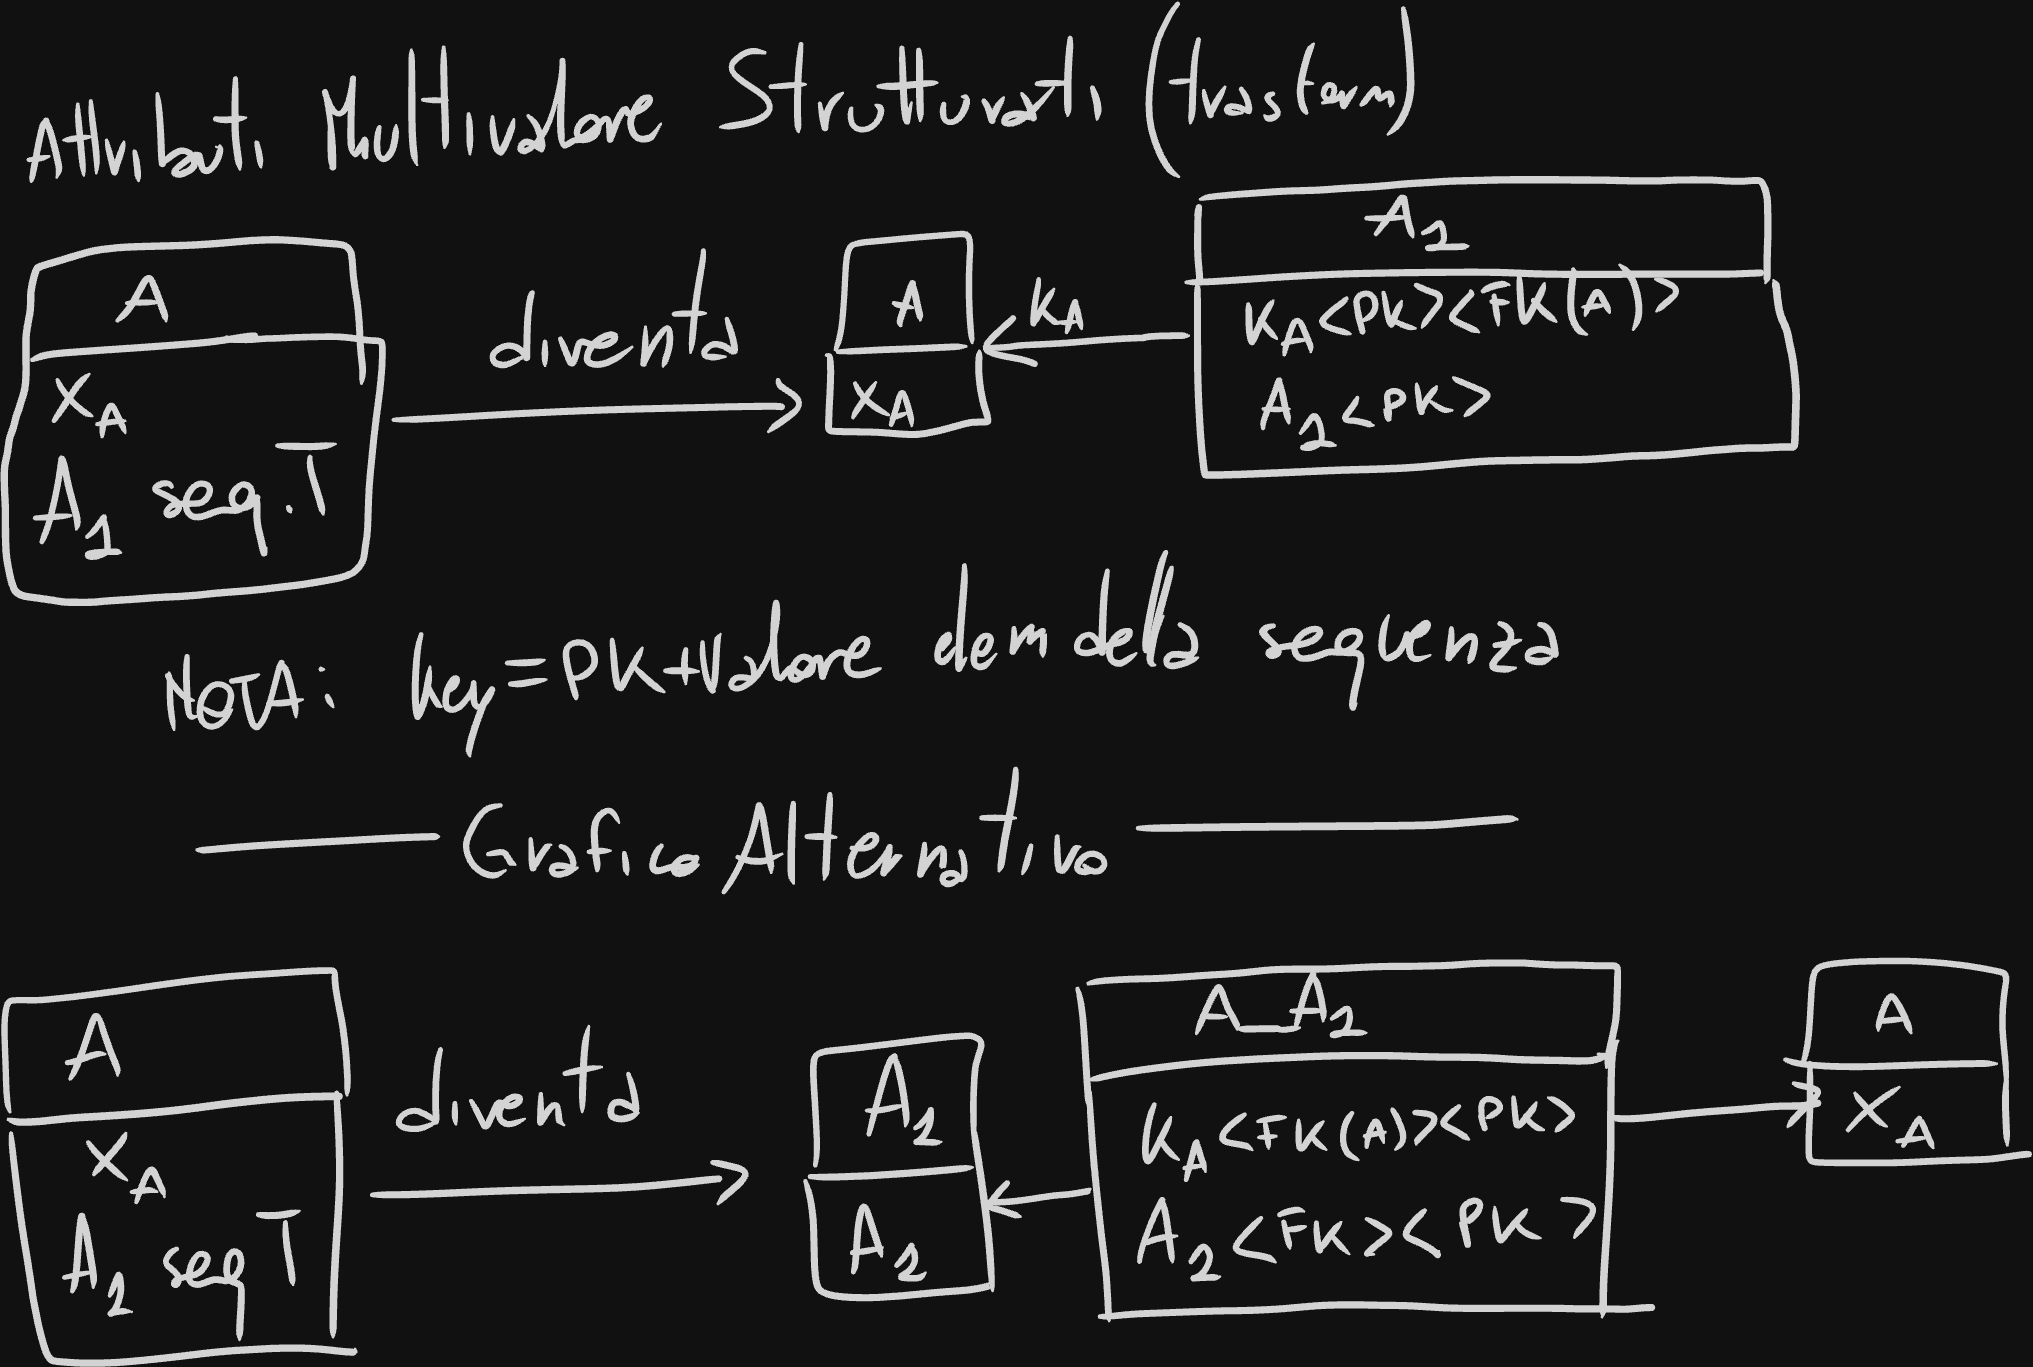 Attributi Multivalore Strutturati (trasform)
A
X_A
A_1 seq. T
diventa
A
X_A
K_A
A_1
K_A <PK> <FK(A)>
A_1 <PK>
NOTA: key = PK + Valore elem della sequenza
Grafico Alternativo
A
X_A
A_1 seq T
diventa
A_1
A_1
A_A_1
K_A <FK(A)> <PK>
A_1 <FK> <PK>
A
X_A